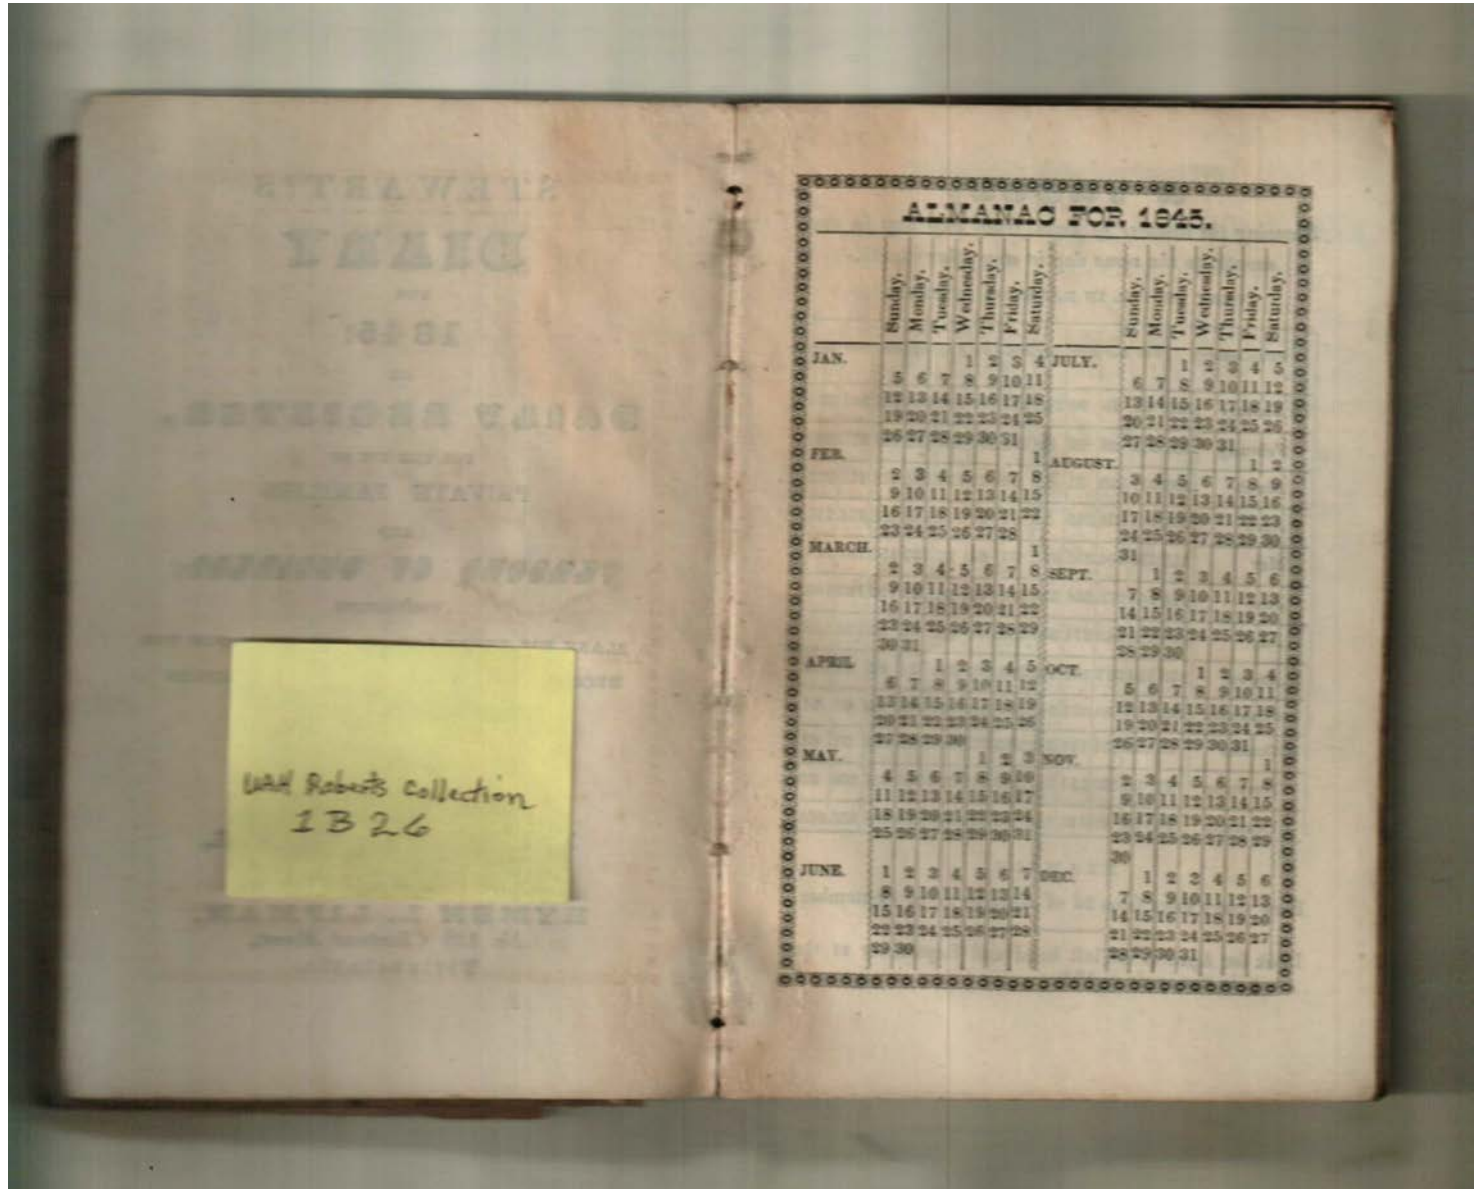 STEWART'S
DIARY
FOR
1845:
OR
DAILY REGISTER,
PRIVATE FAMILIES
AND
PERSONS OF BUSINESS
UAH Roberts Collection
1 B 26
HYMEN L. LIPMAN,
ALMANAC FOR 1845.
Sunday, Monday, Tuesday, Wednesday, Thursday, Friday, Saturday,
JAN. 1 2 3 4
5 6 7 8 9 10 11
12 13 14 15 16 17 18
19 20 21 22 23 24 25
26 27 28 29 30 31
FEB. 1
2 3 4 5 6 7 8
9 10 11 12 13 14 15
16 17 18 19 20 21 22
23 24 25 26 27 28
MARCH. 1
2 3 4 5 6 7 8
9 10 11 12 13 14 15
16 17 18 19 20 21 22
23 24 25 26 27 28 29
30 31
APRIL 1 2 3 4 5
6 7 8 9 10 11 12
13 14 15 16 17 18 19
20 21 22 23 24 25 26
27 28 29 30
MAY. 1 2 3
4 5 6 7 8 9 10
11 12 13 14 15 16 17
18 19 20 21 22 23 24
25 26 27 28 29 30 31
JUNE. 1 2 3 4 5 6 7
8 9 10 11 12 13 14
15 16 17 18 19 20 21
22 23 24 25 26 27 28
29 30
Sunday, Monday, Tuesday, Wednesday, Thursday, Friday, Saturday,
JULY. 1 2 3 4 5
6 7 8 9 10 11 12
13 14 15 16 17 18 19
20 21 22 23 24 25 26
27 28 29 30 31
AUGUST. 1 2
3 4 5 6 7 8 9
10 11 12 13 14 15 16
17 18 19 20 21 22 23
24 25 26 27 28 29 30
31
SEPT. 1 2 3 4 5 6
7 8 9 10 11 12 13
14 15 16 17 18 19 20
21 22 23 24 25 26 27
28 29 30
OCT. 1 2 3 4
5 6 7 8 9 10 11
12 13 14 15 16 17 18
19 20 21 22 23 24 25
26 27 28 29 30 31
NOV. 1
2 3 4 5 6 7 8
9 10 11 12 13 14 15
16 17 18 19 20 21 22
23 24 25 26 27 28 29
30
DEC. 1 2 3 4 5 6
7 8 9 10 11 12 13
14 15 16 17 18 19 20
21 22 23 24 25 26 27
28 29 30 31